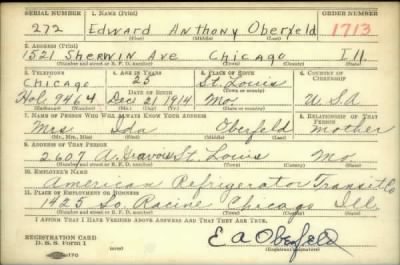 SERIAL NUMBER 1. NAME (Print) ORDER NUMBER
272 Edward Anthony Oberfeld 1713
(First) (Middle) (Last)
2. ADDRESS (Print)
1521 Sherwin Ave Chicago Ill.
(Number and street or R. F. D. number) (Town) (County) (State)
3. TELEPHONE 4. AGE IN YEARS 5. PLACE OF BIRTH 6. COUNTRY OF CITIZENSHIP
Chicago 25 St. Louis
DATE OF BIRTH (Town or county)
Hol 9464 Dec 21 1914 Mo. U.S.A
(Exchange) (Number) (Mo.) (Day) (Yr.) (State or country)
7. NAME OF PERSON WHO WILL ALWAYS KNOW YOUR ADDRESS 8. RELATIONSHIP OF THAT PERSON
Mrs Ida Oberfeld mother
(Mr., Mrs., Miss) (First) (Middle) (Last)
9. ADDRESS OF THAT PERSON
2607 A. Gravois St. Louis Mo
(Number and street or R. F. D. number) (Town) (County) (State)
10. EMPLOYER'S NAME
American Refrigerator Transit Co
11. PLACE OF EMPLOYMENT OR BUSINESS
1425 So. Racine Chicago Ill
(Number and street or R. F. D. number) (Town) (County) (State)
I AFFIRM THAT I HAVE VERIFIED ABOVE ANSWERS AND THAT THEY ARE TRUE.
REGISTRATION CARD
D. S. S. Form 1 E A Oberfeld
(Registrant's signature)